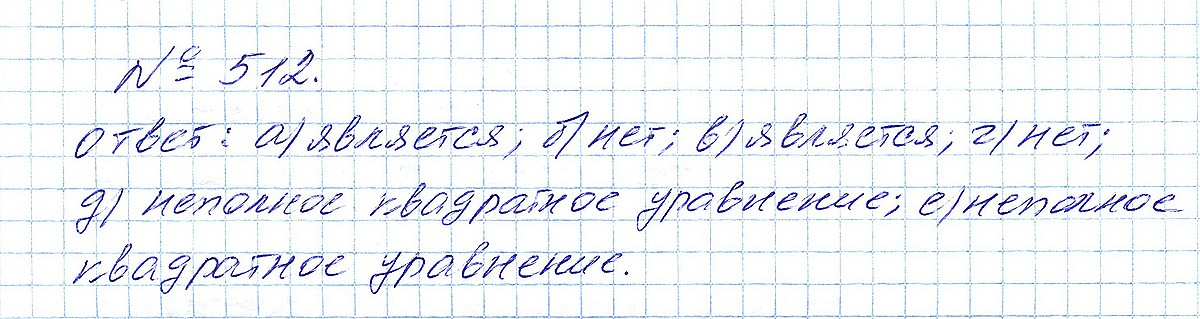 № 512.
ответ: а) является; б) нет; в) является; г) нет;
д) неполное квадратное уравнение; е) неполное
квадратное уравнение.